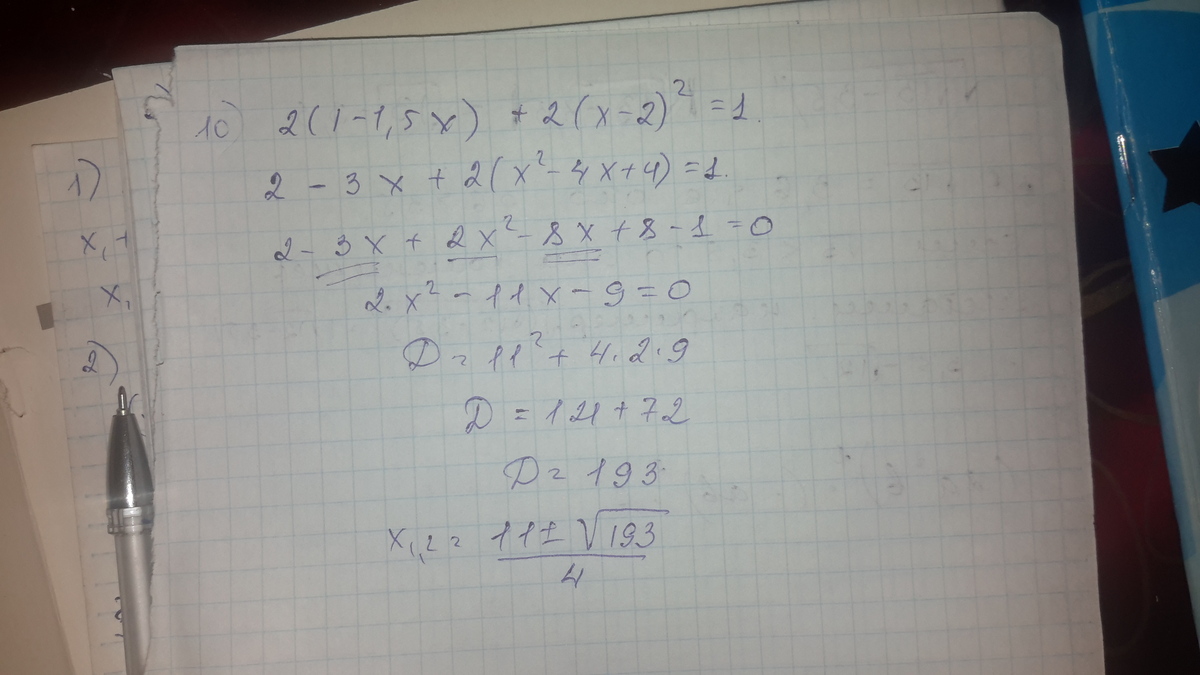 10) 2(1-1,5x) + 2(x-2)² = 1.
2 - 3x + 2(x² - 4x + 4) = 1.
2 - 3x + 2x² - 8x + 8 - 1 = 0
2x² - 11x - 9 = 0
D = 11² + 4·2·9
D = 121 + 72
D = 193
x₁,₂ = (11 ± √193) / 4
1)
x₁
x₁
2)